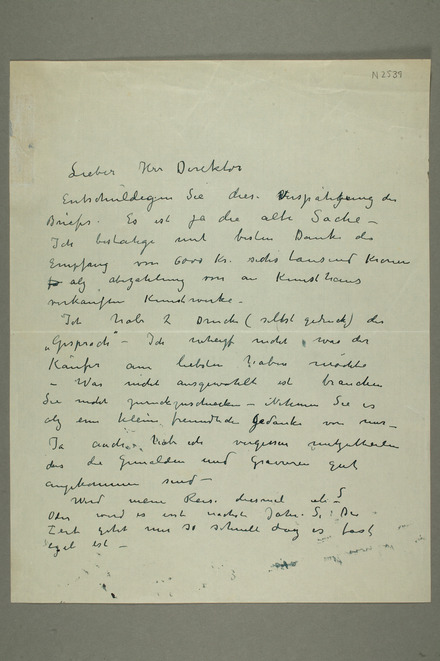 N 2539
Lieber Herr Direktor
Entschuldigen Sie dies. Verspätigung des
Briefes. Es ist ja die alte Sache –
Ich bestätige mit besten Danke des
Empfang von 6000 Kr. sechs tausend Kronen
als abzahlung von an Kunsthaus
verkauften Kunstwerke –
Ich habe 2 Drucke (selbst gedruckt) des
„Gespräch" – Ich nicht was der
Käufer am liebsten haben möchte
– Was nicht ausgewählt ist brauchen
Sie nicht zurückzuschicken – Nehmen Sie es
als ein kleine freundliche Gedanke von mir –
Ja auch habe ich vergessen mitzutheilen
das die Gemälden und Gravuren gut
angekommen sind –
Wird meine Reise diesmal
Oder wird es erst nächste Jahr. Die
Zeit geht mir so schnell das es fast
egal ist –